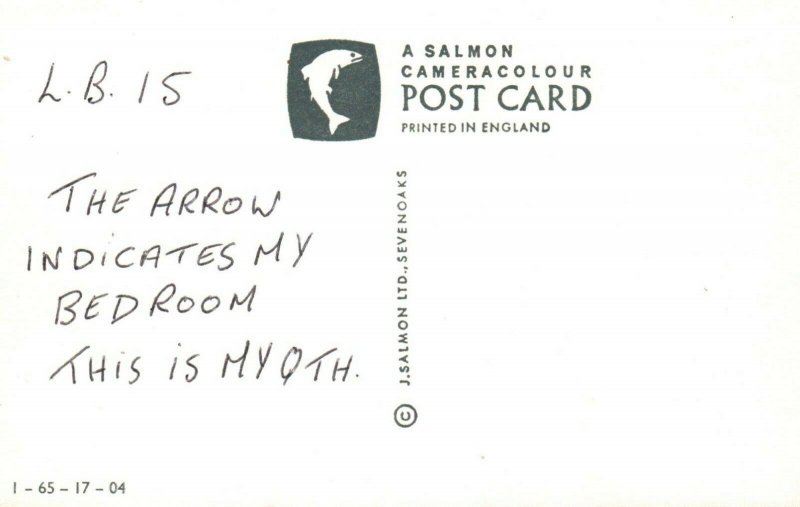 L.B. 15
A SALMON
CAMERACOLOUR
POST CARD
PRINTED IN ENGLAND
THE ARROW
INDICATES MY
BEDROOM
THIS IS MY QTH.
© J. SALMON LTD., SEVENOAKS
1 – 65 – 17 – 04